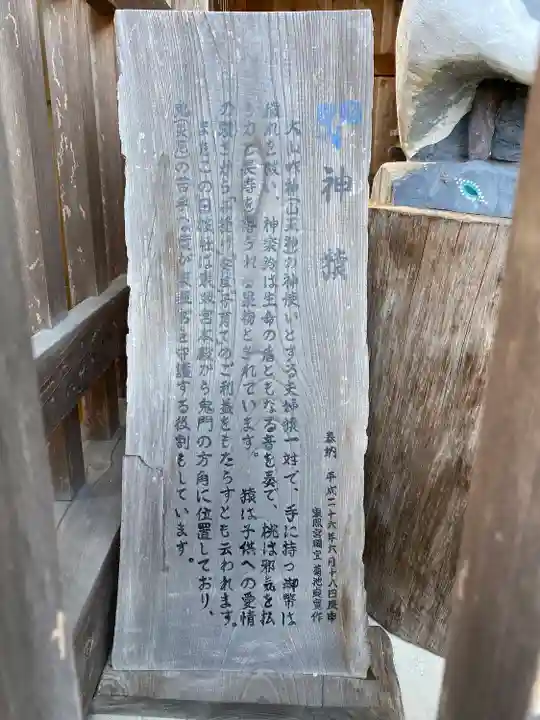 神猿
大山咋神(山王)の神使いとする夫婦猿一対で、手に持つ御幣は
穢れを祓い、神楽鈴は生命の居ともなる音を奏で、桃は邪気を払
う力と長寿を得られる果物とされています。 猿は子供への愛情
の深さから 子育てのご利益をもたらすとも云われます。
またこの日枝社は東照宮本殿から鬼門の方角に位置しており、
東照宮を守護する役割もしています。
奉納 平成二十六年六月十八日庚申
東照宮 菊池 作